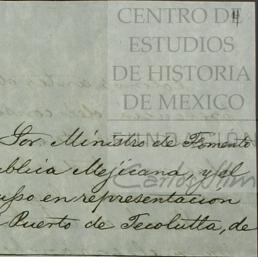 4
CENTRO DE
ESTUDIOS
DE HISTORIA
DE MEXICO
FUNDACIÓN
Carlos Slim
Sor. Ministro de Fomento
ublica Mejicana, y el
en representacion
Puerto de Tecolutta, de